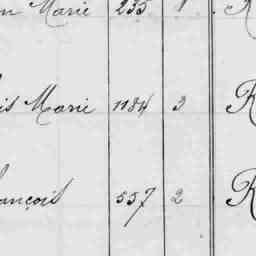 n Marie 235 1 R
is Marie 1184 3 R
ançois 557 2 R